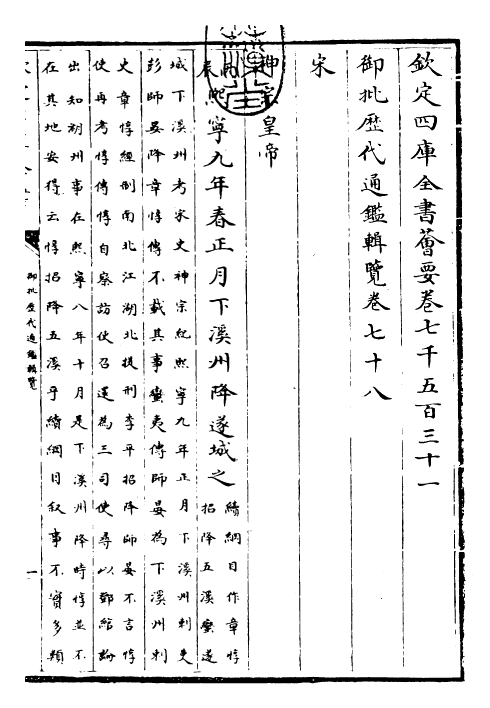 欽定四庫全書薈要卷七千五百三十一
御批歷代通鑑輯覽卷七十八
宋
神宗皇帝
丙辰熙寧九年春正月下溪州降遂城之
續綱目作章惇
招降五溪蠻遂
城下溪州考宋史神宗紀熙寧九年正月下溪州刺史
彭師晏降章惇傳不載其事蠻夷傳師晏為下溪州刺
史章惇經制南北江湖北提刑李平招降師晏不言惇
使再考惇傳惇自察訪使召還為三司使尋以鄧綰論
出知湖州事在熙寧八年十月是下溪州降時惇並不
在其地安得云惇招降五溪乎續綱目叙事不實多類
御批歷代通鑑輯覽
一